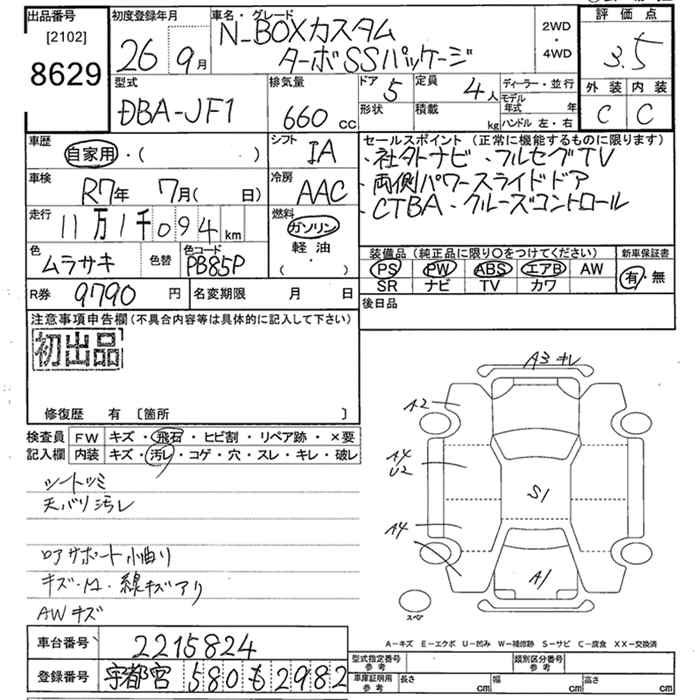 出品番号
[2102]
8629
初度登録年月
26年 9月
車名・グレード
N-BOXカスタム
ターボSSパッケージ
2WD
・
4WD
評価点
3.5
外装 内装
C C
型式
DBA-JF1
排気量
660 cc
ドア 5
定員 4人
形状
積載 kg
ディーラー・並行
モデル年式 年
ハンドル 左・右
車歴
自家用・( )
シフト
IA
車検
R7年 7月( 日)
冷房
AAC
走行
11万1千094km
燃料
ガソリン
軽油
( ・ )
色
ムラサキ
色替
色コード
PB85P
R券 9790円
名変期限 月 日
セールスポイント(正常に機能するものに限ります)
・社外ナビ・フルセグTV
・両側パワースライドドア
・CTBA・クルーズコントロール
装備品(純正品に限り○をつけてください)
PS PW ABS エアB AW
SR ナビ TV カワ
新車保証書
有・無
後日品
注意事項申告欄(不具合内容等は具体的に記入して下さい)
初出品
修復歴 有 [箇所 ]
検査員記入欄
FW キズ・飛石・ヒビ割・リペア跡・×要
内装 キズ・汚レ・コゲ・穴・スレ・キレ・破レ
シートシミ
天バリ汚レ
ロアサポート小曲り
キズ・M・線キズアリ
AWキズ
A3キレ
A2
A4
U2
A4
S1
A1
スペア
A-キズ E-エクボ U-凹み W-補修跡 S-サビ C-腐食 XX-交換済
車台番号 2215824
登録番号 宇都宮 580 も 2982
型式指定番号 参考
類別区分番号 参考
車庫証明用 参考
長さ cm
幅 cm
高さ cm